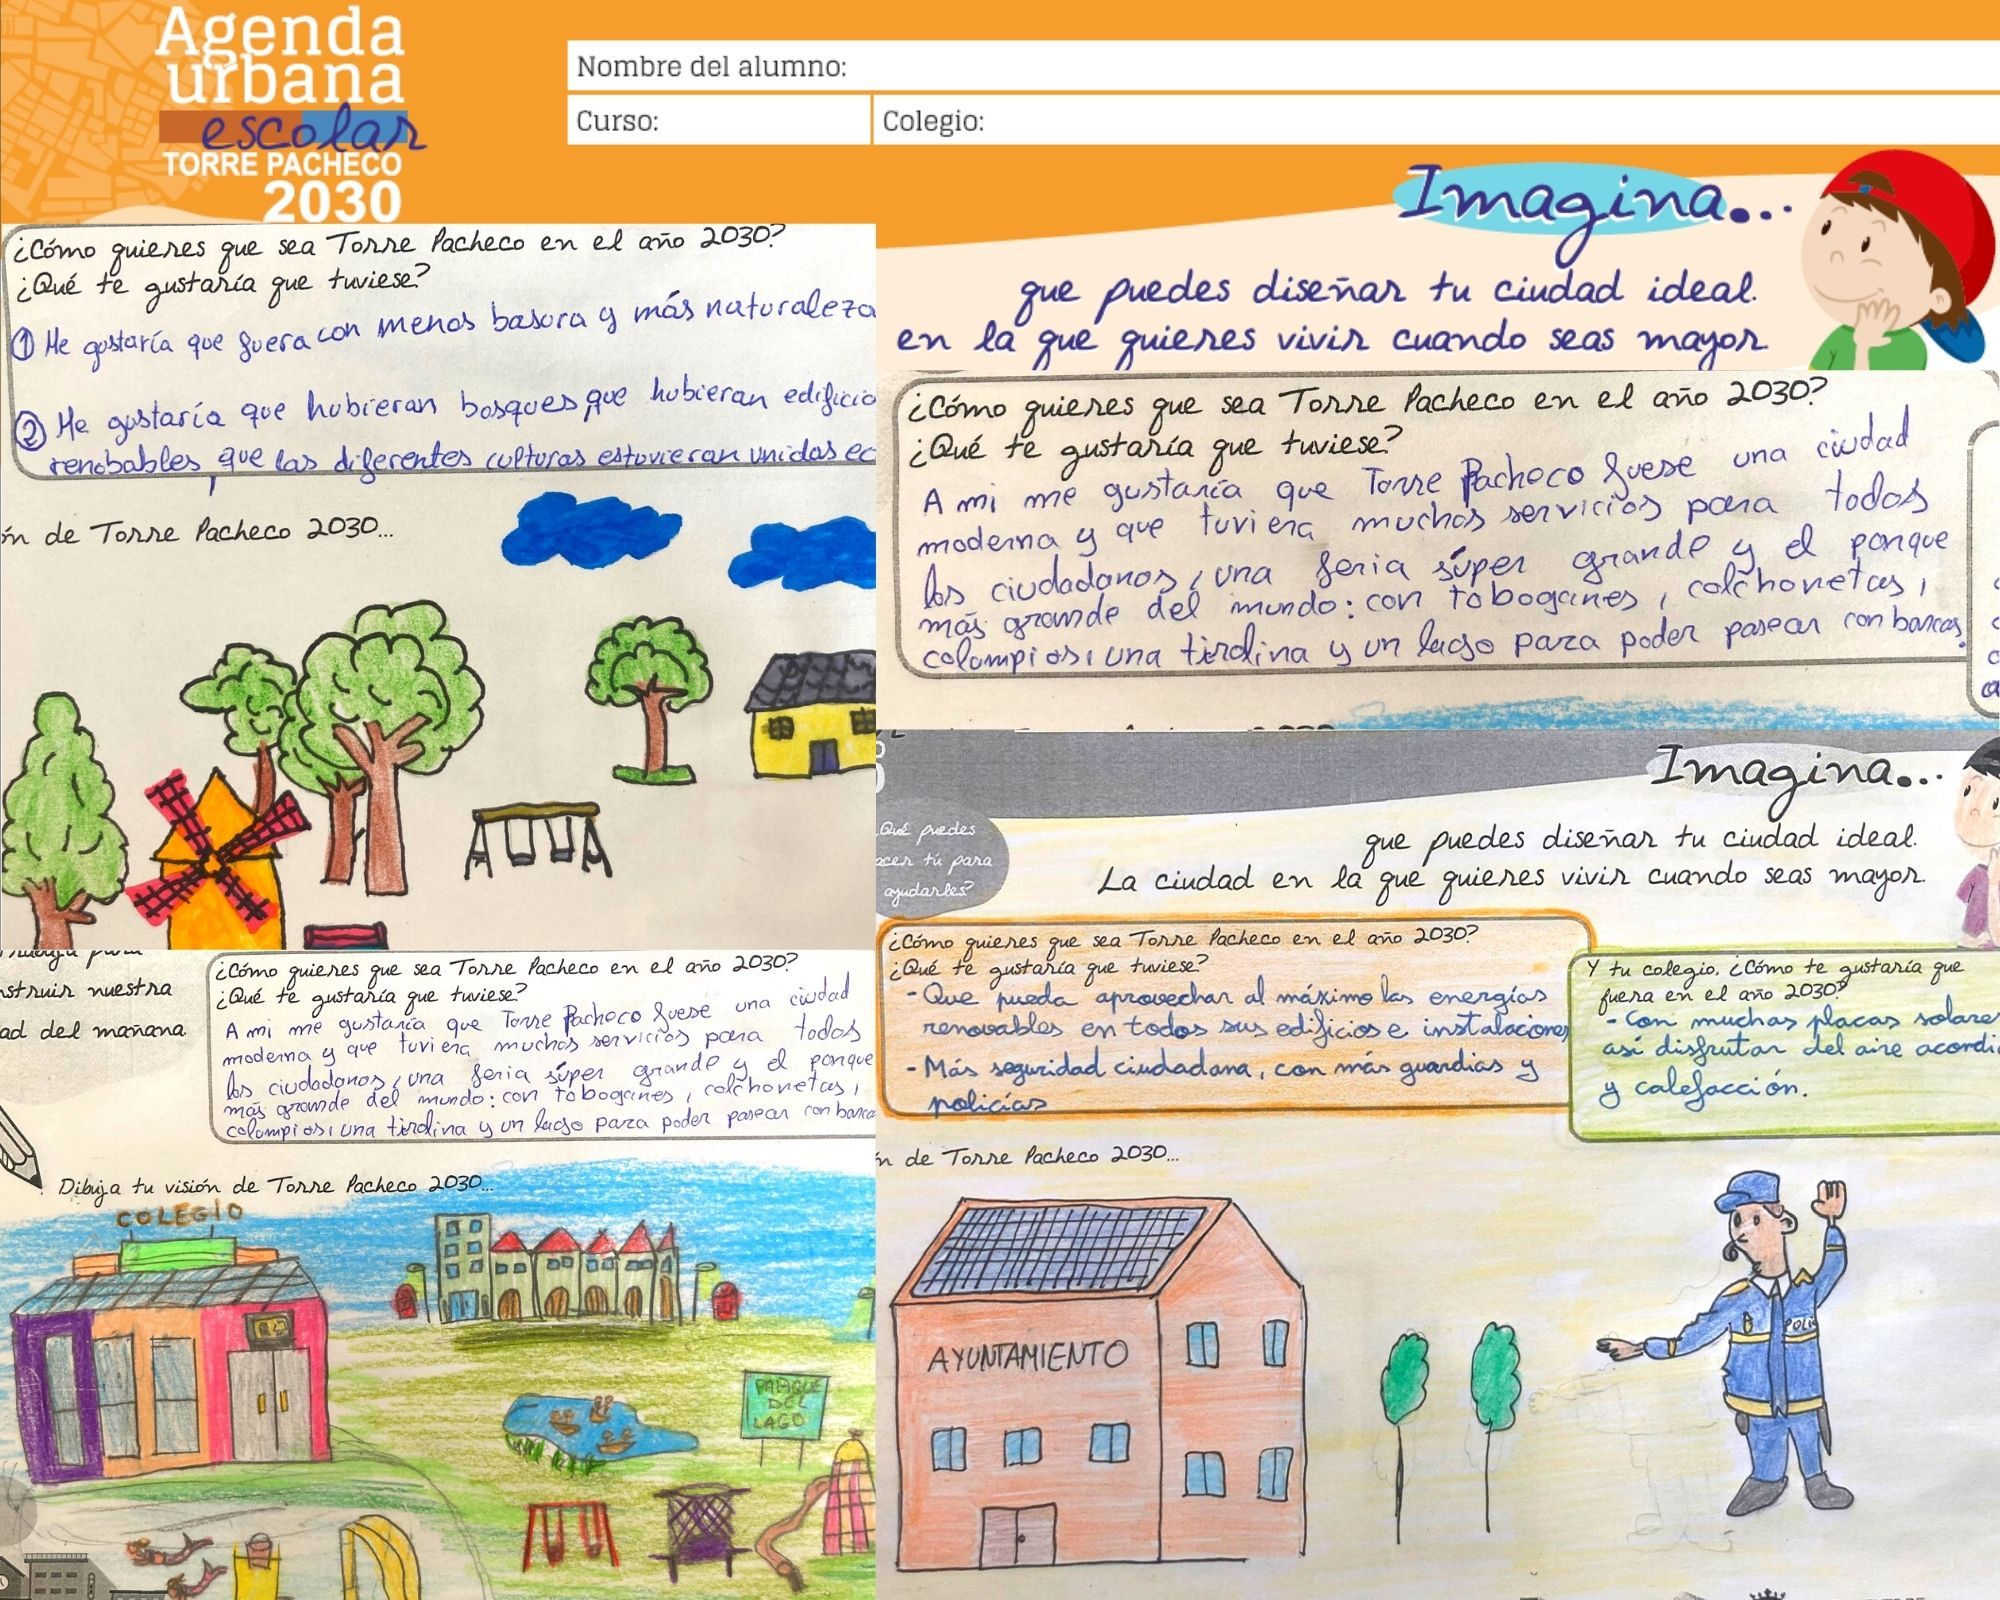 Agenda
urbana
escolar
TORRE PACHECO
2030
Nombre del alumno:
Curso:
Colegio:
Imagina...
que puedes diseñar tu ciudad ideal.
en la que quieres vivir cuando seas mayor
¿Cómo quieres que sea Torre Pacheco en el año 2030?
¿Qué te gustaría que tuviese?
① Me gustaría que fuera con menos basura y más naturaleza
② Me gustaría que hubieran bosques, que hubieran edificio
renobables, que las diferentes culturas estuvieran unidas ec
ón de Torre Pacheco 2030...
¿Cómo quieres que sea Torre Pacheco en el año 2030?
¿Qué te gustaría que tuviese?
A mi me gustaría que Torre Pacheco fuese una ciudad
moderna y que tuviera muchos servicios para todos
los ciudadanos, una feria súper grande y el parque
más grande del mundo: con toboganes, colchonetas,
colompios, una tirolina y un lago para poder pasear con barcas.
nstruir nuestra
ad del mañana
¿Cómo quieres que sea Torre Pacheco en el año 2030?
¿Qué te gustaría que tuviese?
A mi me gustaría que Torre Pacheco fuese una ciudad
moderna y que tuviera muchos servicios para todos
los ciudadanos, una feria súper grande y el parque
más grande del mundo: con toboganes, colchonetas,
colompios, una tirolina y un lago para poder pasear con barca
Dibuja tu visión de Torre Pacheco 2030...
COLEGIO
PARQUE
DEL
LAGO
Imagina...
que puedes diseñar tu ciudad ideal.
La ciudad en la que quieres vivir cuando seas mayor.
¿Qué puedes
acer tú para
ayudarles?
¿Cómo quieres que sea Torre Pacheco en el año 2030?
¿Qué te gustaría que tuviese?
- Que pueda aprovechar al máximo las energías
renovables en todos sus edificios e instalaciones
- Más seguridad ciudadana, con más guardias y
policías
Y tu colegio, ¿Cómo te gustaría que
fuera en el año 2030?
- Con muchas placas solares
así disfrutar del aire acordi
y calefacción.
n de Torre Pacheco 2030...
AYUNTAMIENTO
POLIC